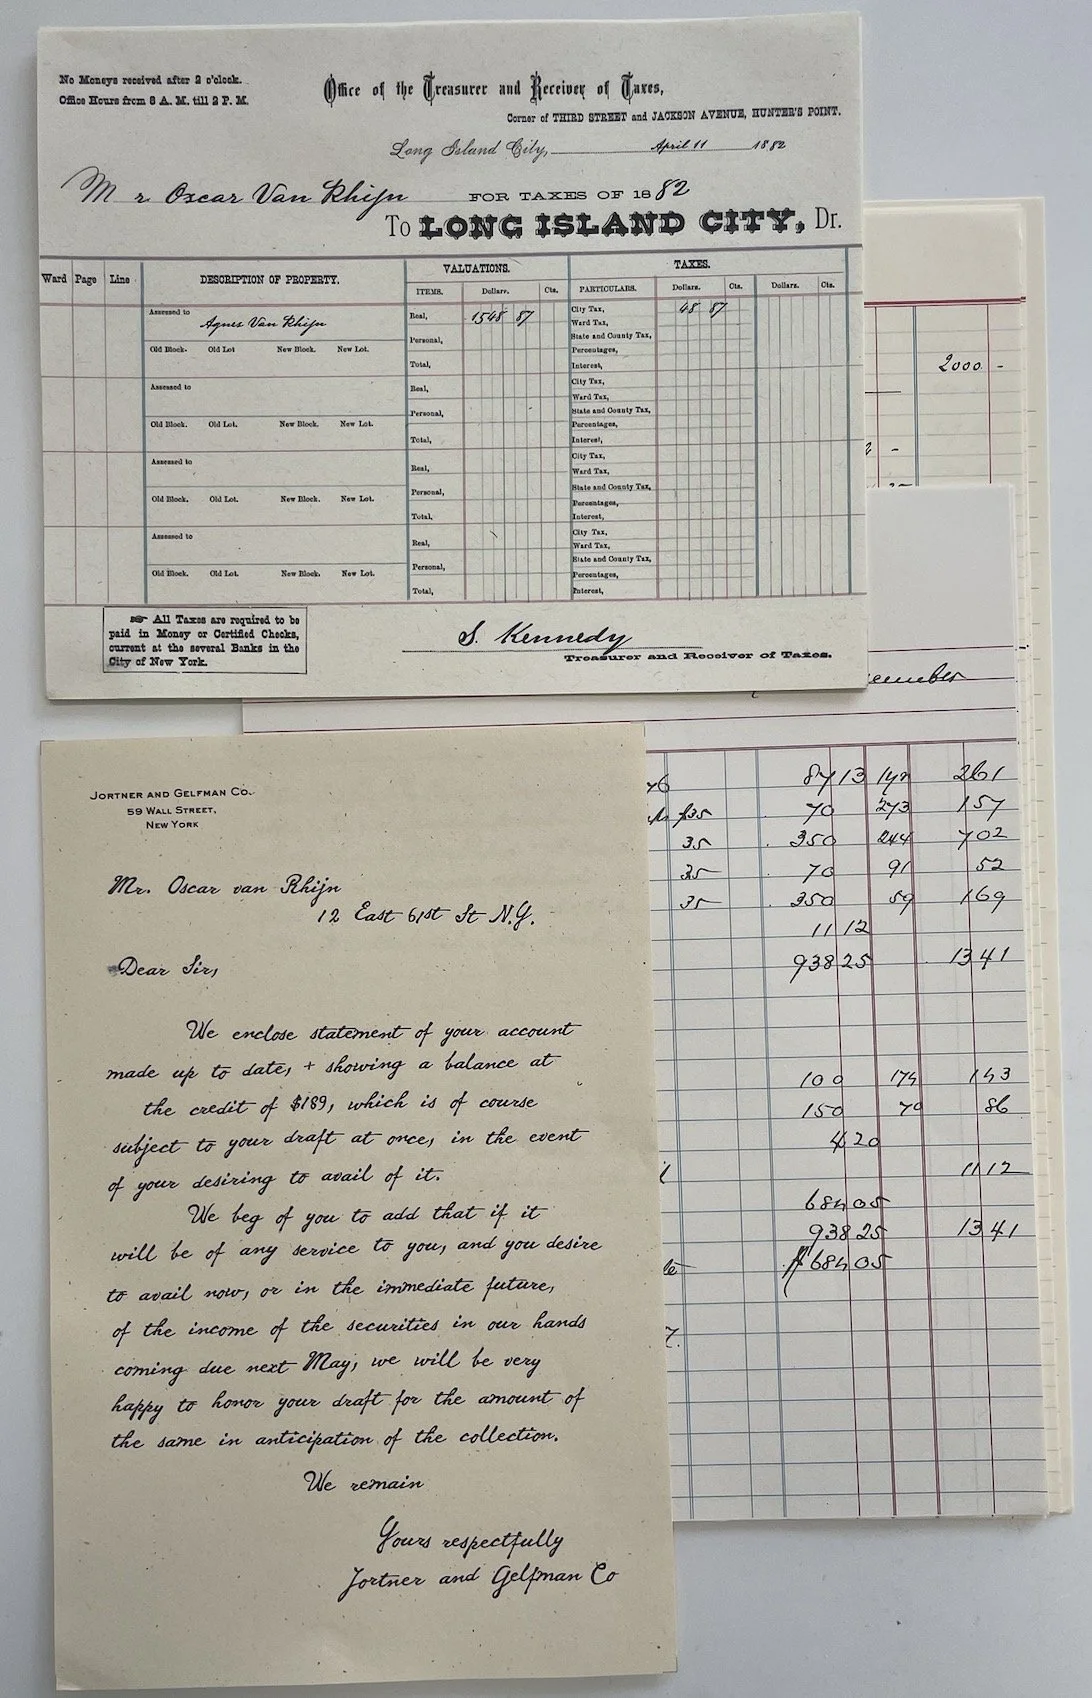 No Moneys received after 2 o'clock.
Office Hours from 8 A. M. till 2 P. M.
Office of the Treasurer and Receiver of Taxes,
Corner of THIRD STREET and JACKSON AVENUE, HUNTER'S POINT.
Long Island City, April 11 1882
Mr Oscar Van Rhijn FOR TAXES OF 1882
To LONG ISLAND CITY, Dr.
Ward Page Line DESCRIPTION OF PROPERTY. VALUATIONS. TAXES.
ITEMS. Dollars. Cts. PARTICULARS. Dollars. Cts. Dollars. Cts.
Assessed to Agnes Van Rhijn Real, 1548 87 City Tax, 48 87
Ward Tax,
Personal, State and County Tax,
Old Block. Old Lot New Block. New Lot. Percentages,
Total, Interest,
Assessed to Real, City Tax,
Ward Tax,
Personal, State and County Tax,
Old Block. Old Lot. New Block. New Lot. Percentages,
Total, Interest,
Assessed to Real, City Tax,
Ward Tax,
Personal, State and County Tax,
Old Block. Old Lot. New Block. New Lot. Percentages,
Total, Interest,
Assessed to Real, City Tax,
Ward Tax,
Personal, State and County Tax,
Old Block. Old Lot. New Block. New Lot. Percentages,
Total, Interest,
☞ All Taxes are required to be
paid in Money or Certified Checks,
current at the several Banks in the
City of New York.
S. Kennedy
Treasurer and Receiver of Taxes.
2000 -
JORTNER AND GELFMAN CO.
59 WALL STREET,
NEW YORK
Mr. Oscar van Rhijn
12 East 61st St N.Y.
Dear Sir,
We enclose statement of your account
made up to date, + showing a balance at
the credit of $189, which is of course
subject to your draft at once, in the event
of your desiring to avail of it.
We beg of you to add that if it
will be of any service to you, and you desire
to avail now, or in the immediate future,
of the income of the securities in our hands
coming due next May, we will be very
happy to honor your draft for the amount of
the same in anticipation of the collection.
We remain
Yours respectfully
Jortner and Gelfman Co
ember
8713 142 261
35 70 273 157
35 350 244 702
35 70 91 52
35 350 59 169
11 12
938 25 1341
100 174 143
150 79 86
4 20
11 12
684 05
938 25 1341
$684 05